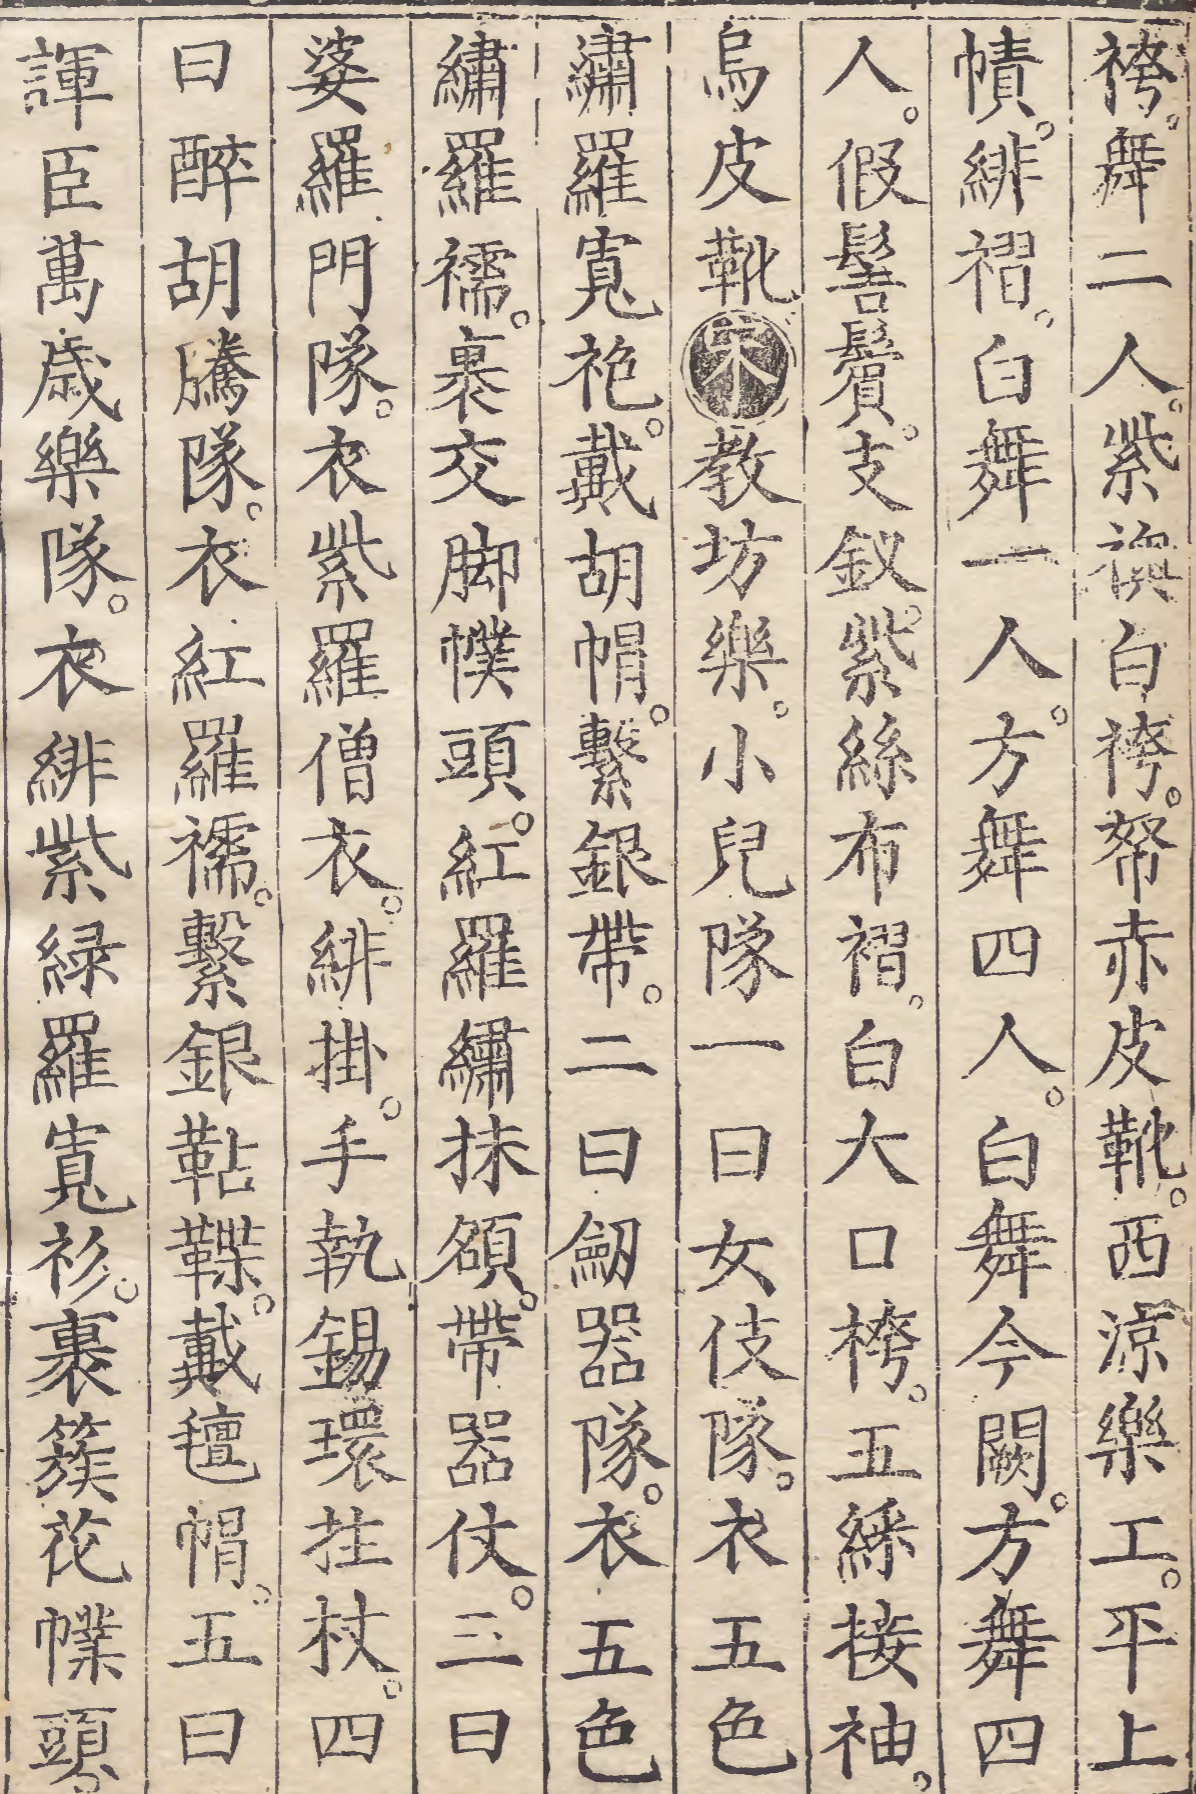 袴。舞二人。紫襖白袴。帑赤皮靴。西涼樂工。平上
幘。緋褶。白舞一人。方舞四人。白舞今闕。方舞四
人。假髻鬢。支釵。紫絲布褶。白大口袴。五綵接袖。
烏皮靴宋教坊樂。小兒隊一曰女伎隊。衣五色
繡羅寬袍。戴胡帽。繫銀帶。二曰劒器隊。衣五色
繡羅襦。裹交脚幞頭。紅羅繡抹額。帶器仗。三曰
婆羅門隊。衣紫羅僧衣。緋掛。手執錫環拄杖。四
曰醉胡騰隊。衣紅羅襦。繫銀鞊鞢。戴氊帽。五曰
諢臣萬歳樂隊。衣緋紫緑羅寬衫。裹簇花幞頭。